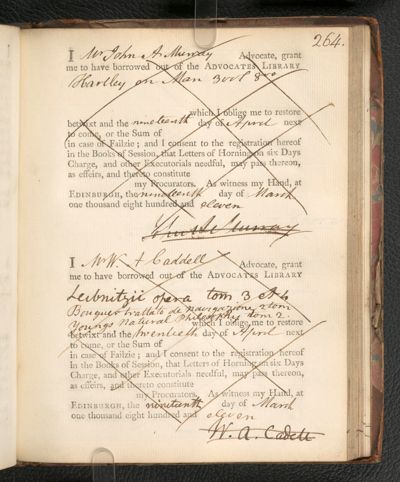 264.
I Mr John A. Murray Advocate, grant
me to have borrowed out of the ADVOCATES LIBRARY
Hartley on Man 3 vol 8vo
which I oblige me to restore
betwixt and the nineteenth day of April next
to come, or the Sum of
(in case of Failzie; and I consent to the registration hereof
in the Books of Session, that Letters of Horning on six Days
Charge, and other Executorials needful, may pass thereon,
as effeirs, and thereto constitute
my Procurators. As witness my Hand, at
EDINBURGH, the nineteenth day of March
one thousand eight hundred and eleven
John A. Murray
I Mr W. A Caddell Advocate, grant
me to have borrowed out of the ADVOCATES LIBRARY
Leibnitzii opera tom. 3 &
Bouguer trattato de navigazione 2 tom
Youngs Natural Philosophy tom 2.
which I oblige me to restore
betwixt and the day of April next
to come, or the Sum of
in case of Failzie; and I consent to the registration hereof
in the Books of Session, that Letters of Horning on six Days
Charge, and other Executorials needful, may pass thereon,
as effeirs, and thereto constitute
my Procurators. As witness my Hand, at
EDINBURGH, the nineteenth day of March
one thousand eight hundred and eleven
W. A. Cadell